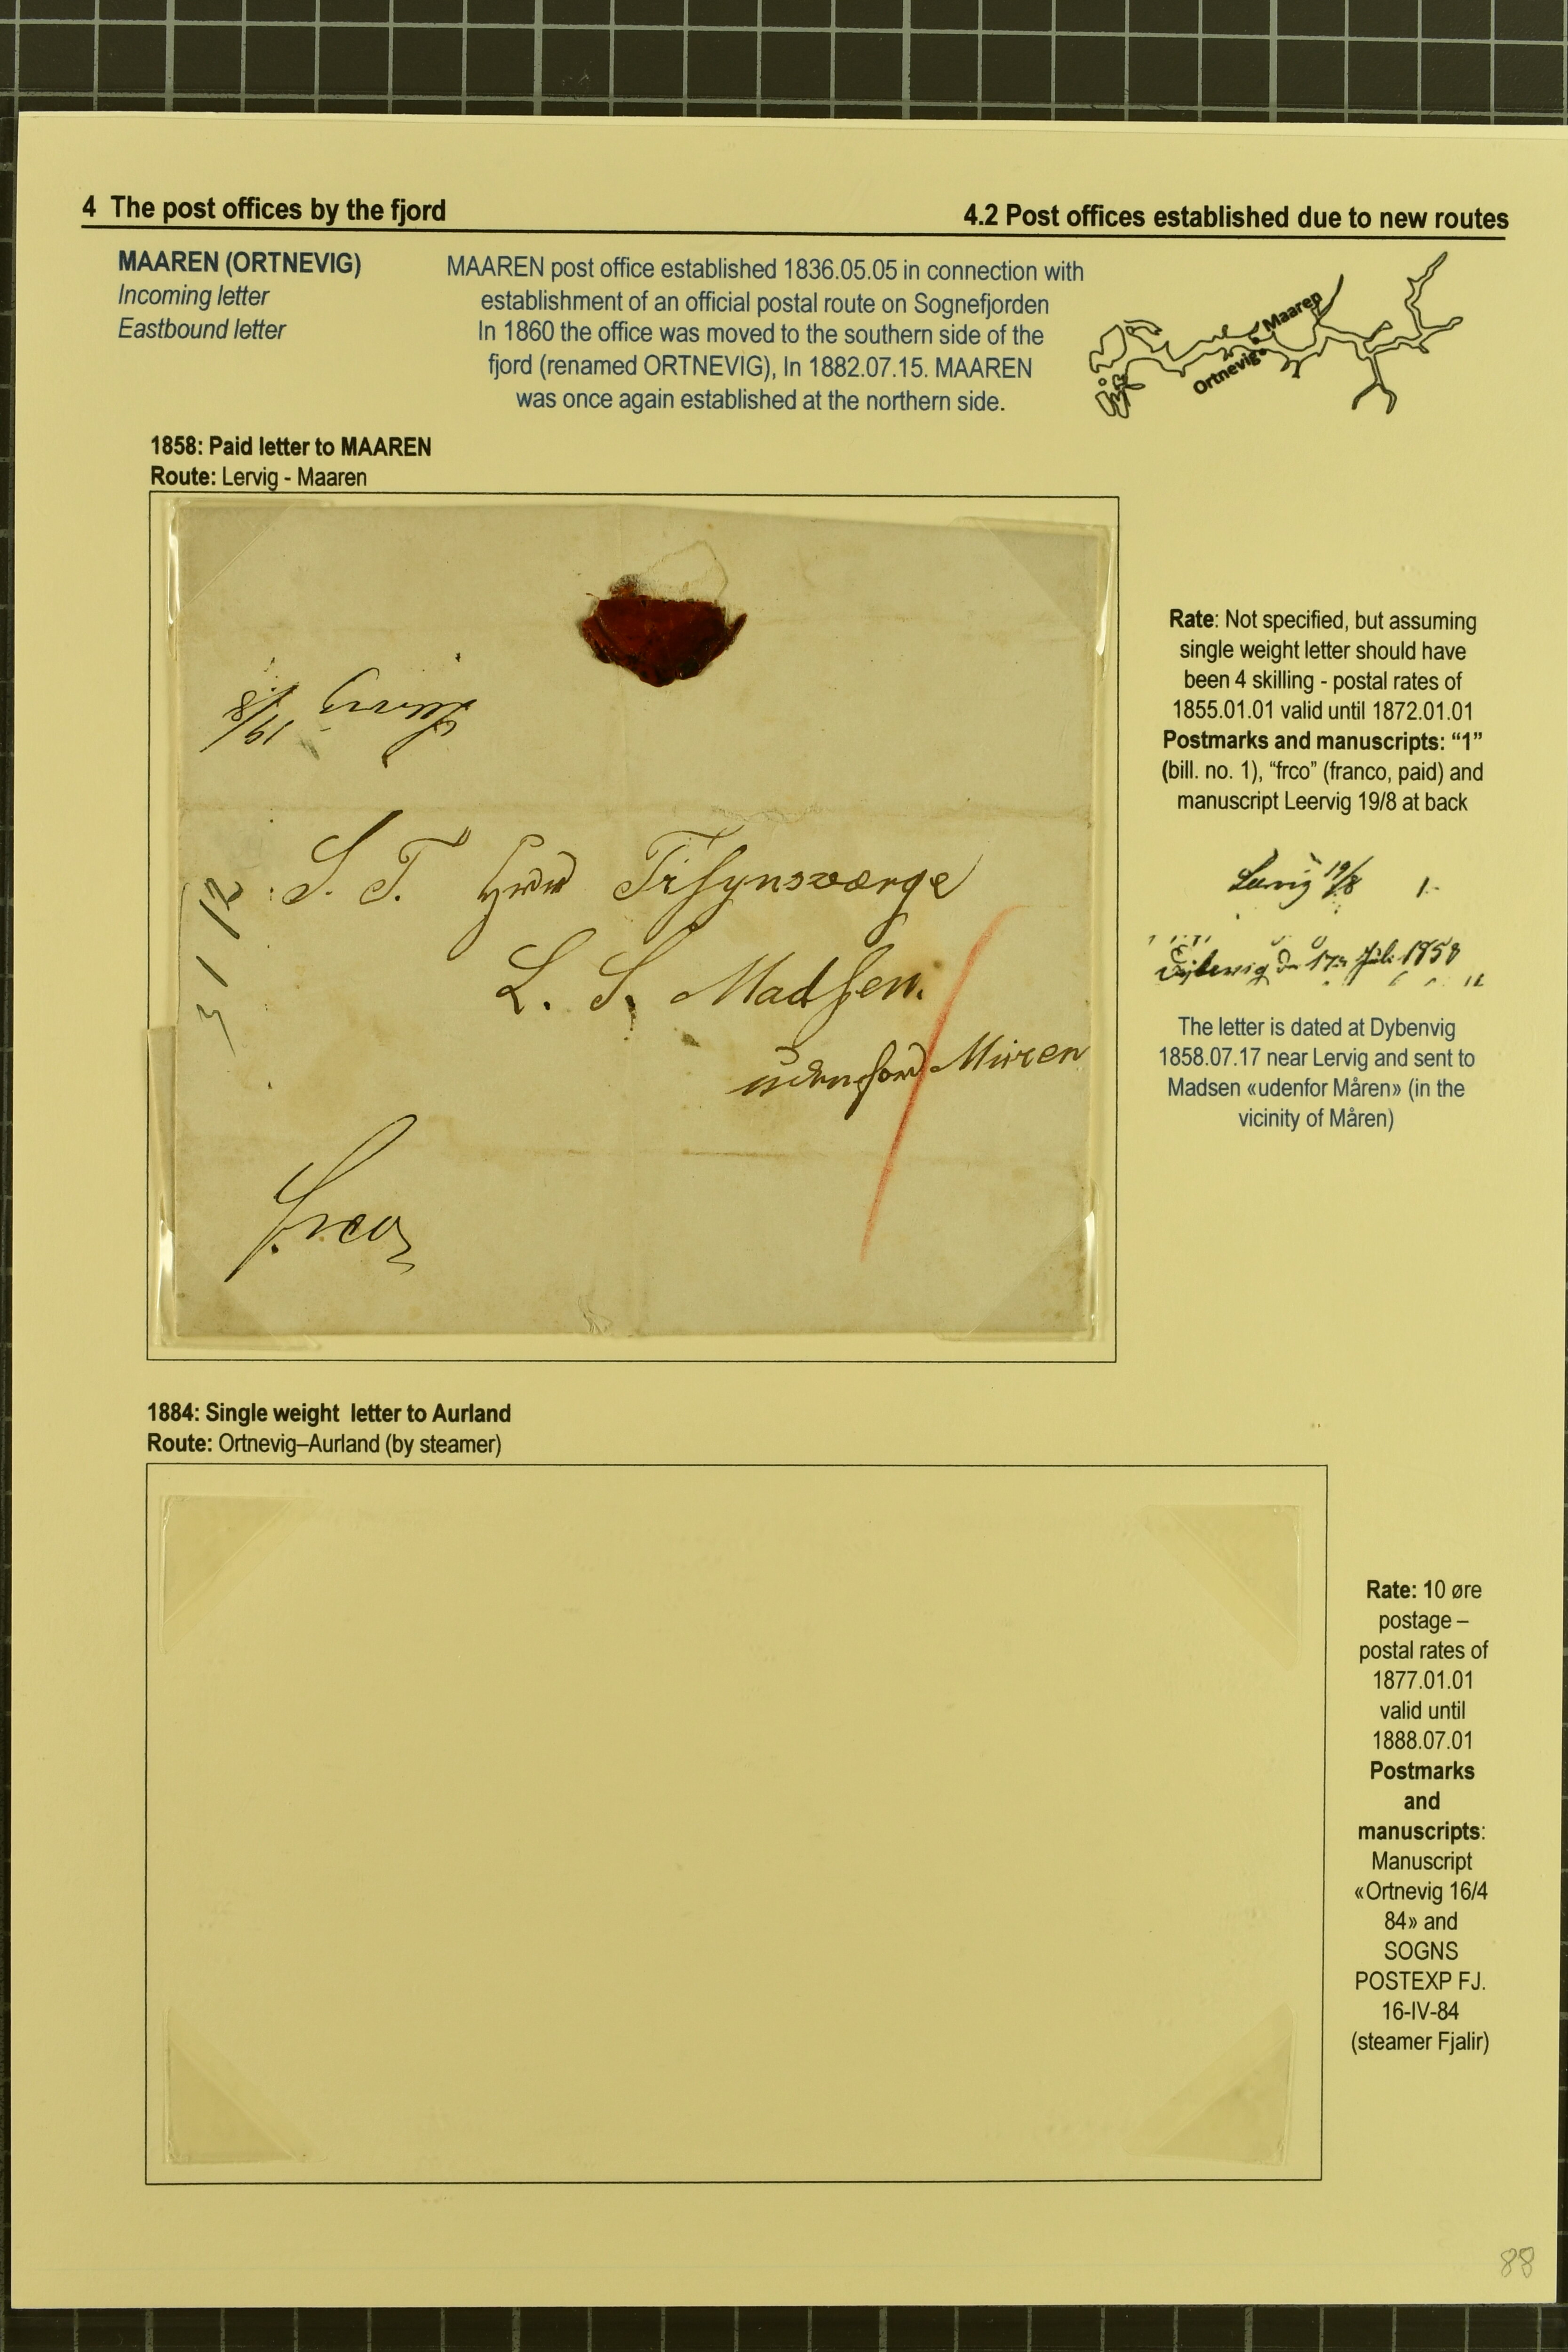 4 The post offices by the fjord
4.2 Post offices established due to new routes
MAAREN (ORTNEVIG)
Incoming letter
Eastbound letter
MAAREN post office established 1836.05.05 in connection with
establishment of an official postal route on Sognefjorden
In 1860 the office was moved to the southern side of the
fjord (renamed ORTNEVIG), In 1882.07.15. MAAREN
was once again established at the northern side.
Maaren
Ortnevig
1858: Paid letter to MAAREN
Route: Lervig - Maaren
Lervig 19/8
S. T. Herr Tilsynsværge
L. S. Madsen.
udenfor Maaren
frco
Rate: Not specified, but assuming
single weight letter should have
been 4 skilling - postal rates of
1855.01.01 valid until 1872.01.01
Postmarks and manuscripts: “1”
(bill. no. 1), “frco” (franco, paid) and
manuscript Leervig 19/8 at back
Lervig 19/8 1.
17 Juli 1858
The letter is dated at Dybenvig
1858.07.17 near Lervig and sent to
Madsen «udenfor Måren» (in the
vicinity of Måren)
1884: Single weight letter to Aurland
Route: Ortnevig–Aurland (by steamer)
Rate: 10 øre
postage –
postal rates of
1877.01.01
valid until
1888.07.01
Postmarks
and
manuscripts:
Manuscript
«Ortnevig 16/4
84» and
SOGNS
POSTEXP FJ.
16-IV-84
(steamer Fjalir)
88